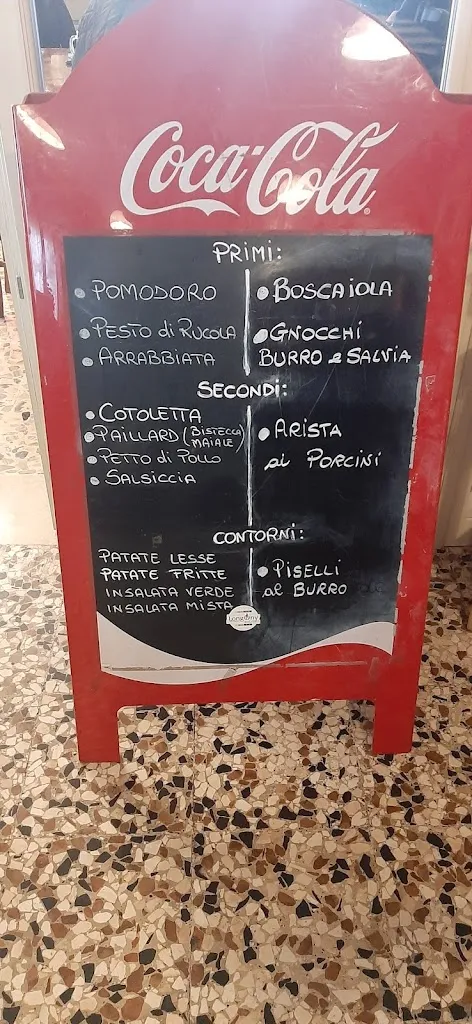 Coca-Cola
PRIMI:
• POMODORO
• PESTO di RUCOLA
• ARRABBIATA
• BOSCAIOLA
• GNOCCHI
BURRO e SALVIA
SECONDI:
• COTOLETTA
• PAILLARD (BISTECCA MAIALE)
• PETTO di POLLO
• SALSICCIA
• ARISTA
ai PORCINI
CONTORNI:
PATATE LESSE
PATATE FRITTE
INSALATA VERDE
INSALATA MISTA
• PISELLI
al BURRO